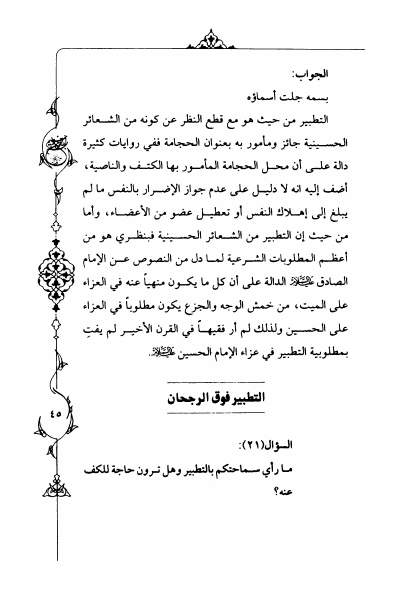 الجواب:
بسمه جلت أسماؤه
التطبير من حيث هو مع قطع النظر عن كونه من الشعائر
الحسينية جائز ومأمور به بعنوان الحجامة ففي روايات كثيرة
دالة على أن محل الحجامة المأمور بها الكتف والناصية،
أضف إليه انه لا دليل على عدم جواز الإضرار بالنفس ما لم
يبلغ إلى إهلاك النفس أو تعطيل عضو من الأعضاء، وأما
من حيث إن التطبير من الشعائر الحسينية فبنظري هو من
أعظم المطلوبات الشرعية لما دل من النصوص عن الإمام
الصادق الدالة على أن كل ما يكون منهياً عنه في العزاء
على الميت، من خمش الوجه والجزع يكون مطلوباً في العزاء
على الحسين ولذلك لم أر فقيهاً في القرن الأخير لم يفتِ
بمطلوبية التطبير في عزاء الإمام الحسين .
التطبير فوق الرجحان
٤٥
السؤال(٢١):
ما رأي سماحتكم بالتطبير وهل ترون حاجة للكف
عنه؟